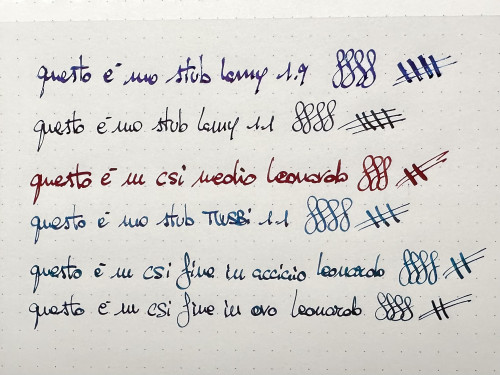 questo è uno stub Lamy 1.9
questo è uno stub Lamy 1.1
questo è un CSI medio Leonardo
questo è uno stub TWSBi 1.1
questo è un CSI fine in acciaio Leonardo
questo è un CSI fine in oro Leonardo